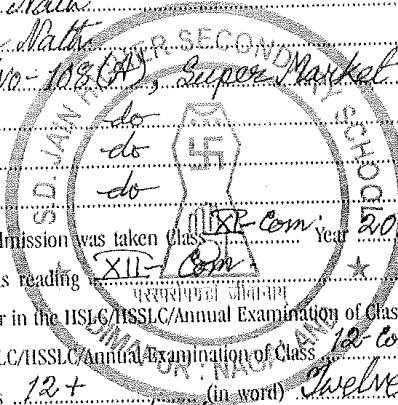 Nath
Nath
No-108(A), Super Market
do
do
do
S.D. JAIN HIGHER SECONDARY SCHOOL
dmission was taken Class XI-Com. Year 20
s reading XII-Com
परस्परोपग्रहो जीवानाम्
r in the HSLC/HSSLC/Annual Examination of Clas
LC/HSSLC/Annual Examination of Class 12-Co
DIMAPUR : NAGALAND
12+ (in word) Twelve